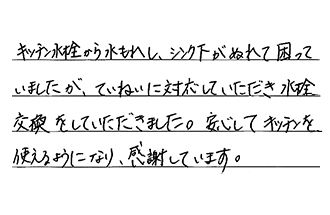 キッチン水栓から水もれし、シンク下がぬれて困って
いましたが、ていねいに対応していただき水栓
交換をしていただきました。安心してキッチンを
使えるようになり、感謝しています。